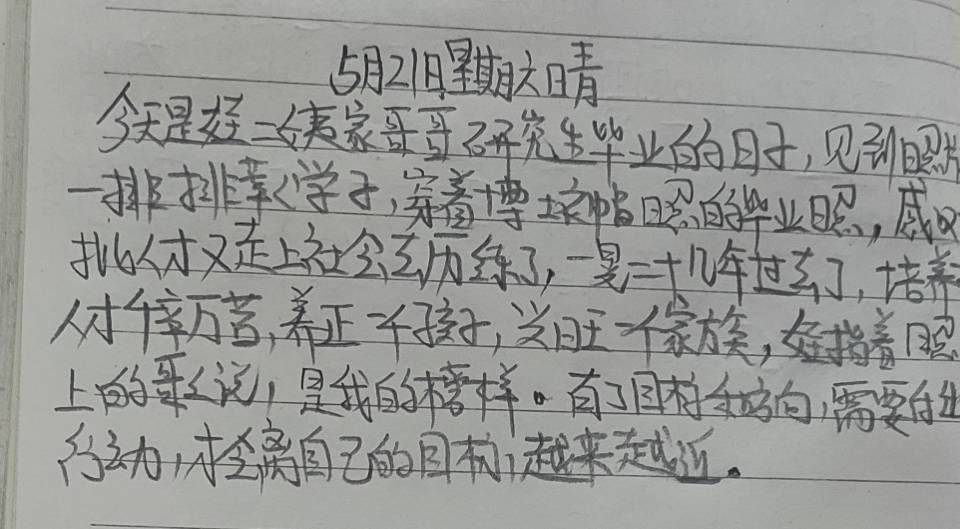 5月21日星期六晴
今天是侄二姨家哥哥研究生毕业的日子,见到照片
一排排莘く学子,穿着博士衣帽照的毕业照,感叹
批人才又走上社会去历练了,一晃二十几年过去了,培养
人才千辛万苦,养正一个孩子,兴旺一个家族,侄指着照
上的哥く说,是我的榜样。有了目标和方向,需要付出
行动,才会离自己的目标,越来越近。